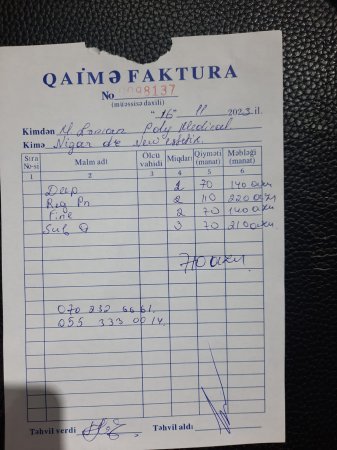 QAİMƏ FAKTURA
No 0098137
(müəssisə daxili)
"16" 11 2023 il.
Kimdən Poly Medical
Kimə Nigar New
Sıra №-si Malın adı Ölçü vahidi Miqdarı Qiyməti (manat) Məbləği (manat)
1 2 3 4 5 6
Deep 2 70 140 azn
2 110 220 azn
Fine 2 70 140 azn
Sub Q 3 70 210 azn
710 azn
070 232 66 61
055 333 00 14
Təhvil verdi Təhvil aldı